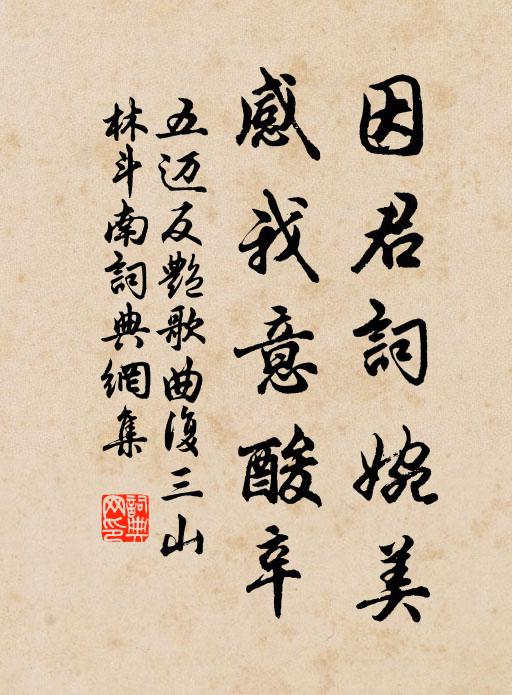 因君詞婉美
感我意酸辛
五迈反艷歌曲復三山
林斗南詞典網集
詞典
网印